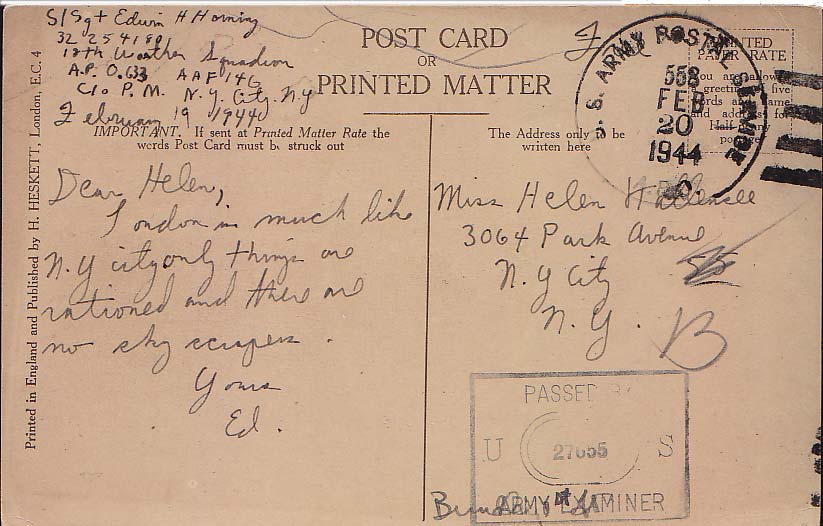 S/Sgt Edwin H Horning
32254180
18th Weather Squadron
A.P.O. 633 AAF 146
C/o P.M. N.Y. City N.Y
February 19 1944
POST CARD
OR
PRINTED MATTER
IMPORTANT. If sent at Printed Matter Rate the
words Post Card must be struck out
Dear Helen,
London is much like
N.Y city only things are
rationed and there are
no sky scrapers.
Yours
Ed.
Printed in England and Published by H. HESKETT, London, E.C. 4
The Address only to be
written here
PRINTED
PAPER RATE
You are allowed
a greeting of five
words and name
and address for
Half-penny
postage
U. S. ARMY POSTAL SERVICE
558
FEB
20
1944
Miss Helen
3064 Park Avenue
N.Y City
N.Y.
B
PASSED BY
U S
ARMY EXAMINER